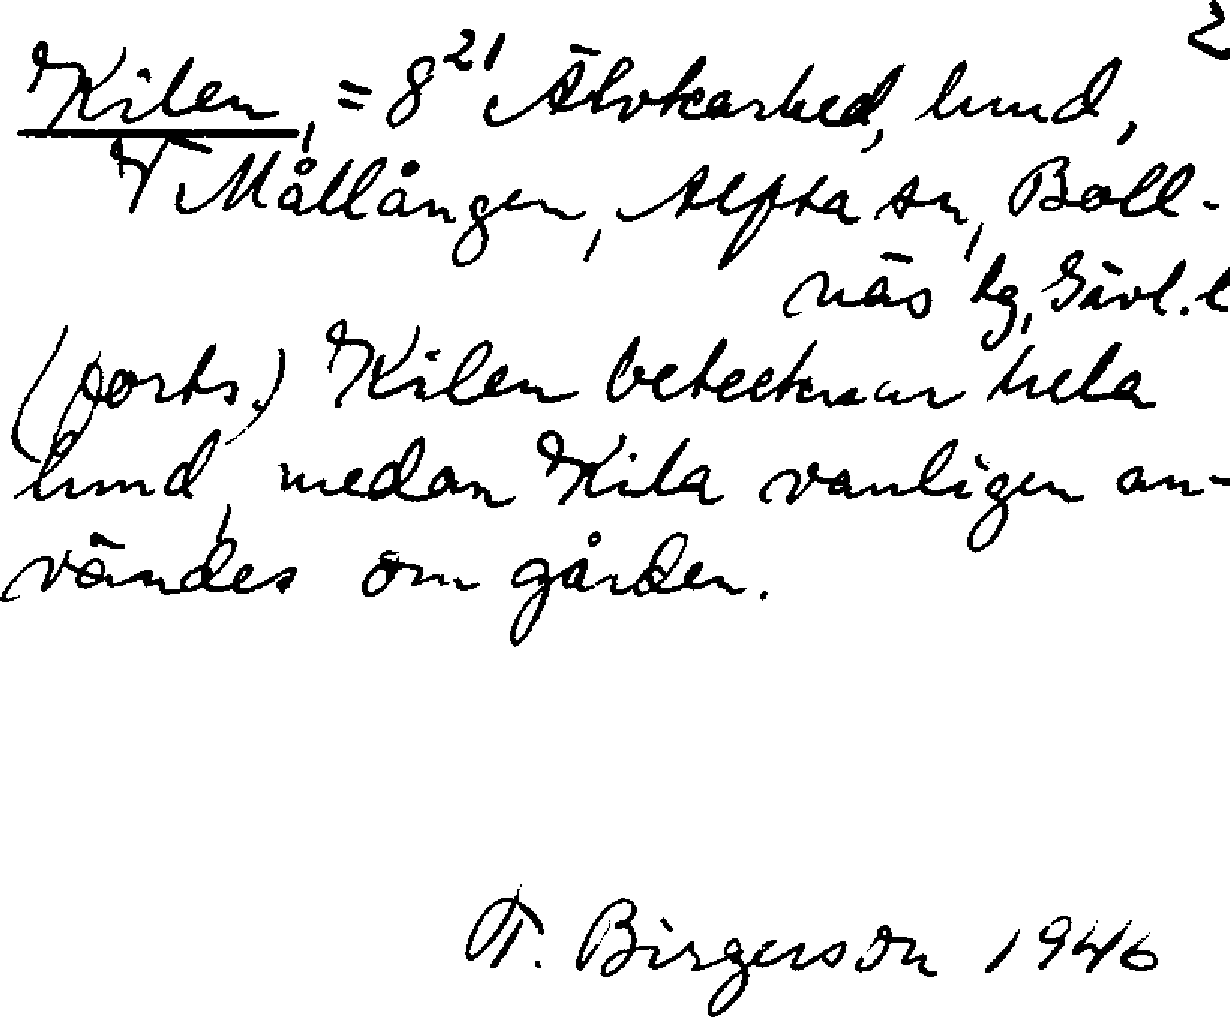 2
Kilen, = 8²¹ Älvkarhed, hmd,
V Mållången, Alfta sn, Boll-
näs tg, Gävl. l
(forts.) Kilen betecknar hela
hmd, medan Kila vanligen an-
vändes om gården.
F. Birgerson 1946